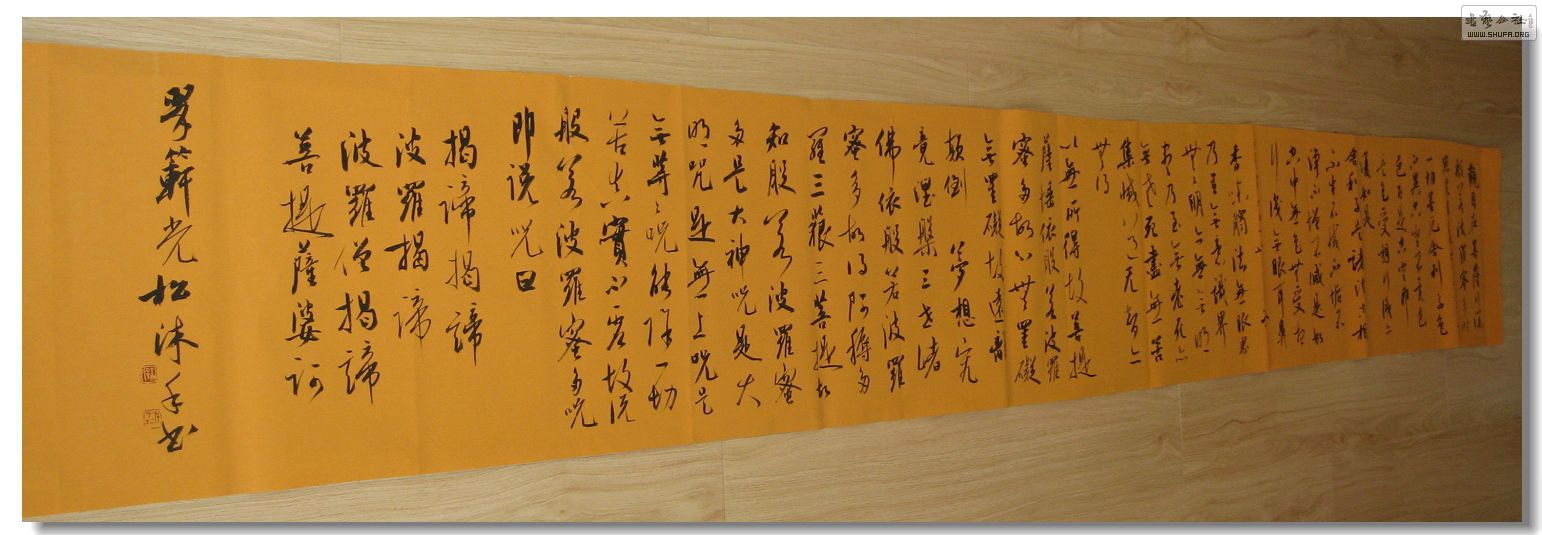 觀自在菩薩行深
般若波羅蜜多時
一切苦厄舍利子色
不異空空不異色
色即是空空即
是色受想行識亦
復如是
舍利子是諸法空相
不生不滅不垢不
淨不增不減是故
空中無色無受想
行識無眼耳鼻
香味觸法無眼界
乃至無意識界
無無明亦無無明
盡乃至無老死亦
無老死盡無苦
集滅道無智亦
無得
以無所得故菩提
薩埵依般若波羅
蜜多故心無罣礙
無罣礙故遠離
顛倒夢想究
竟涅槃三世諸
佛依般若波羅
蜜多故得阿耨多
羅三藐三菩提故
知般若波羅蜜
多是大神咒是大
明咒是無上咒是
無等等咒能除一切
苦真實不虛故说
般若波羅蜜多咒
即说咒曰
揭諦揭諦
波羅揭諦
波羅僧揭諦
菩提薩婆訶
軒光松沐手书
书艺公社
WWW.SHUFA.ORG